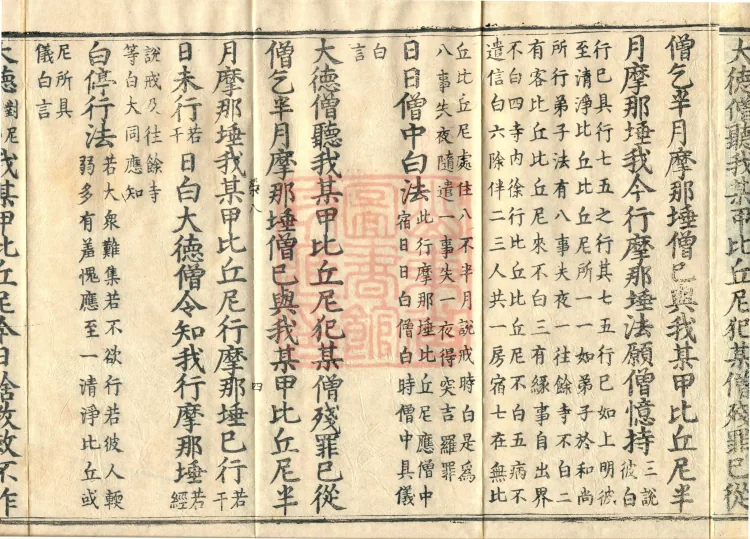 大德僧聽我某甲比丘尼犯某僧殘罪已從
僧乞半月摩那埵僧已與我某甲比丘尼半
月摩那埵我今行摩那埵法願僧憶持三說彼白
行已具行七五之行其七五行已如上明彼
至清淨比丘比丘尼所一一如弟子於和尚
所行弟子法有八事失夜一往餘寺不白二
有客比丘比丘尼來不白三有緣事自出界
不白四寺內徐行比丘比丘尼不白五病不
遣信白六除伴二三人共一房宿七在無比
丘比丘尼處住八不半月說戒時白是為
八事失夜隨違一事失一夜得突吉羅罪
日日僧中白法此行摩那埵比丘尼應僧中
宿日日白僧白時僧中具儀
白
言
大德僧聽我某甲比丘尼犯某僧殘罪已從
僧乞半月摩那埵僧已與我某甲比丘尼半
四
月摩那埵我某甲比丘尼行摩那埵已行若干
日未行若干日白大德僧令知我行摩那埵若經
說戒及往餘寺
等白大同應知
白停行法若大衆難集若不欲行若彼人軟
弱多有羞愧應至一清淨比丘或
尼所具
儀白言
大德對尼我某甲比丘尼今日捨教敕不作